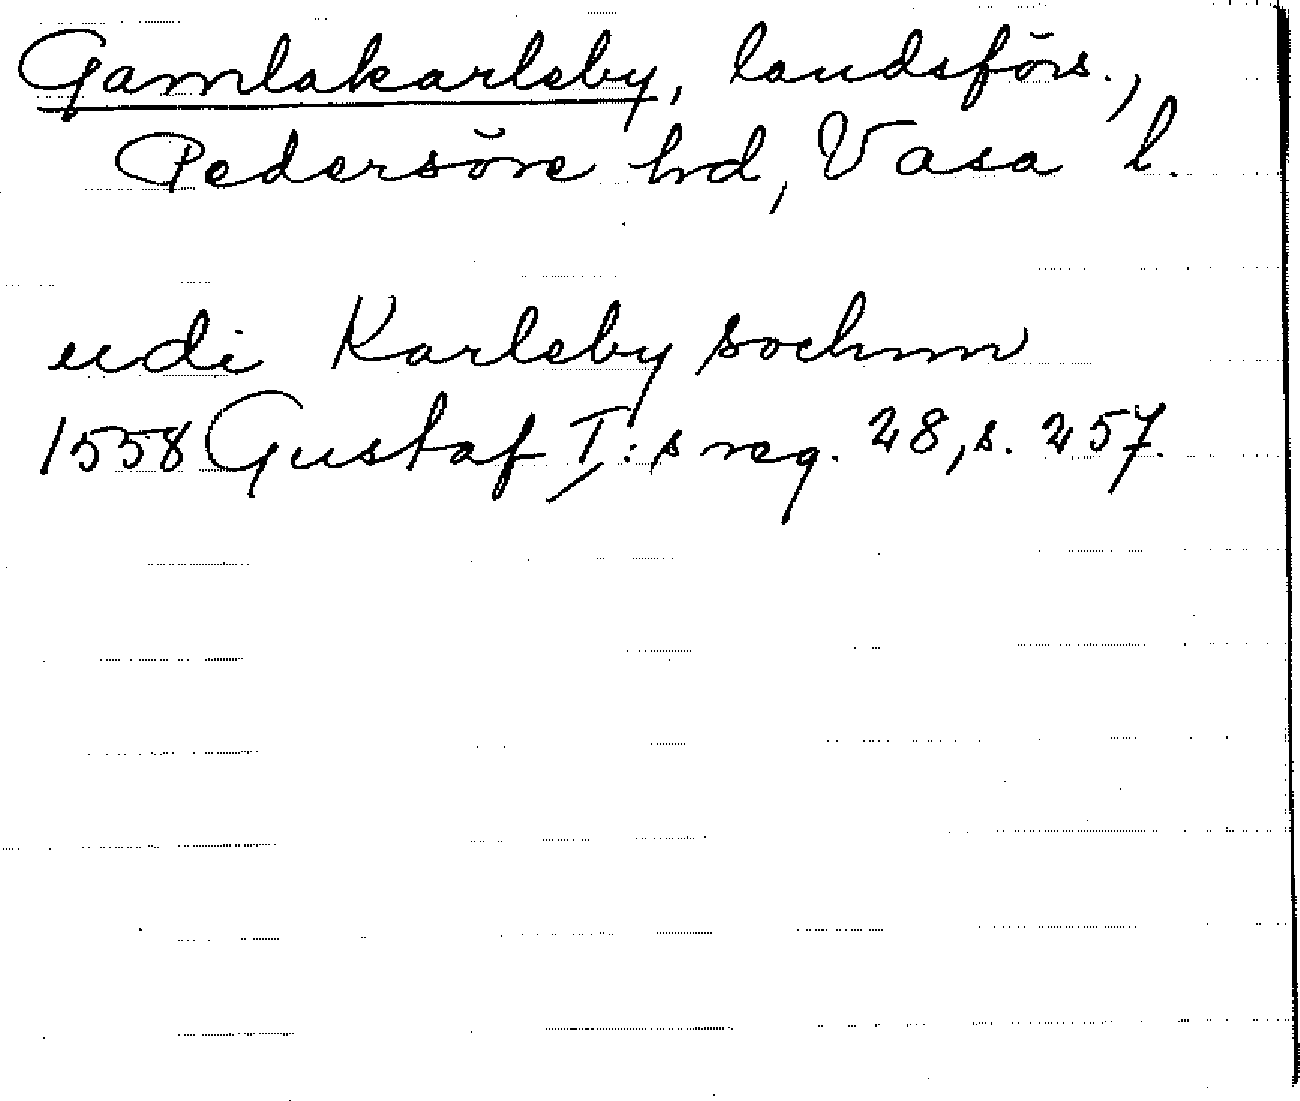 Gamlakarleby, landsförs.,
Pedersöre hd, Vasa l.
udi Karleby sochnn
1558 Gustaf I:s reg. 28, s. 257.